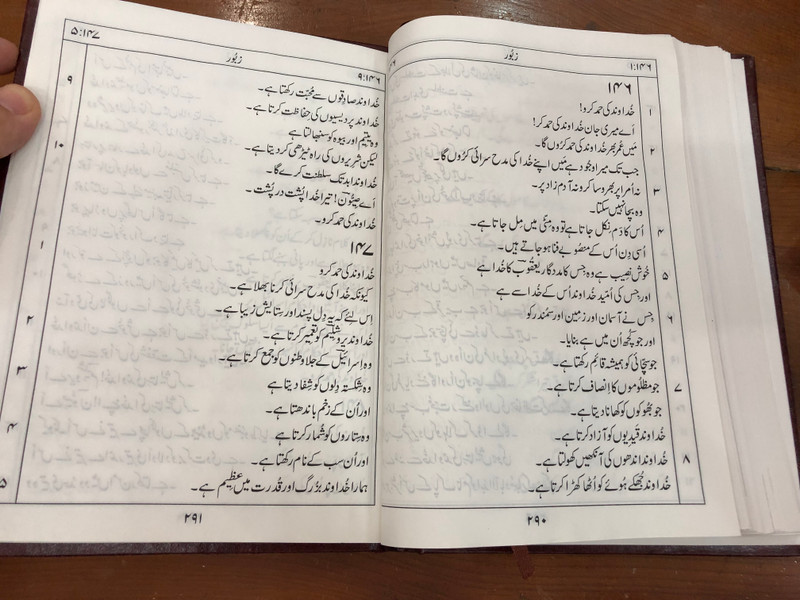 ۱:۱۴۶
زبُور
۱۴۶
۱ خُداوند کی حمد کرو!
اَے میری جان خُداوند کی حمد کر!
۲ مَیں عُمر بھر خُداوند کی حمد کرُوں گا۔
جب تک میرا وجُود ہے مَیں اپنے خُدا کی مدح سرائی کرُوں گا۔
۳ نہ اُمرا پر بھروسا کرو نہ آدمؔ زاد پر۔
وہ بچا نہیں سکتا۔
۴ اُس کا دَم نِکل جاتا ہے تو وہ مِٹّی میں مِل جاتا ہے۔
اُسی دِن اُس کے منصُوبے فنا ہو جاتے ہیں۔
۵ خُوش نصِیب ہے وہ جِس کا مددگار یعقُوبؔ کا خُدا ہے
اور جِس کی اُمّید خُداوند اُس کے خُدا سے ہے
۶ جِس نے آسمان اور زمِین اور سمُندر کو
اور جو کُچھ اُن میں ہے بنایا۔
جو سچّائی کو ہمیشہ قائِم رکھتا ہے۔
۷ جو مظلُوموں کا اِنصاف کرتا ہے۔
جو بُھوکوں کو کھانا دیتا ہے۔
خُداوند قَیدیوں کو آزاد کرتا ہے۔
۸ خُداوند اندھوں کی آنکھیں کھولتا ہے۔
خُداوند جُھکے ہُوئے کو اُٹھا کھڑا کرتا ہے۔
۲۹۰
۹:۱۴۶
زبُور
۵:۱۴۷
خُداوند صادِقوں سے مُحبّت رکھتا ہے۔
۹ خُداوند پردیسیوں کی حِفاظت کرتا ہے۔
وہ یتِیم اور بیوہ کو سنبھالتا ہے
لیکن شرِیروں کی راہ ٹیڑھی کر دیتا ہے۔
۱۰ خُداوند ابد تک سلطنت کرے گا۔
اَے صِیُّونؔ! تیرا خُدا پُشت در پُشت۔
خُداوند کی حمد کرو۔
۱۴۷
۱ خُداوند کی حمد کرو
کیونکہ خُدا کی مدح سرائی کرنا بھلا ہے۔
اِس لِئے کہ یہ دِل پسند اور سِتایش زیبا ہے۔
۲ خُداوند یروشلِیم کو تعمِیر کرتا ہے۔
وہ اِسرائیلؔ کے جلاوطنوں کو جمع کرتا ہے۔
۳ وہ شِکستہ دِلوں کو شِفا دیتا ہے
اور اُن کے زخم باندھتا ہے۔
۴ وہ سِتاروں کو شُمار کرتا ہے
اور اُن سب کے نام رکھتا ہے۔
۵ ہمارا خُداوند بزُرگ اور قُدرت میں عظِیم ہے۔
۲۹۱